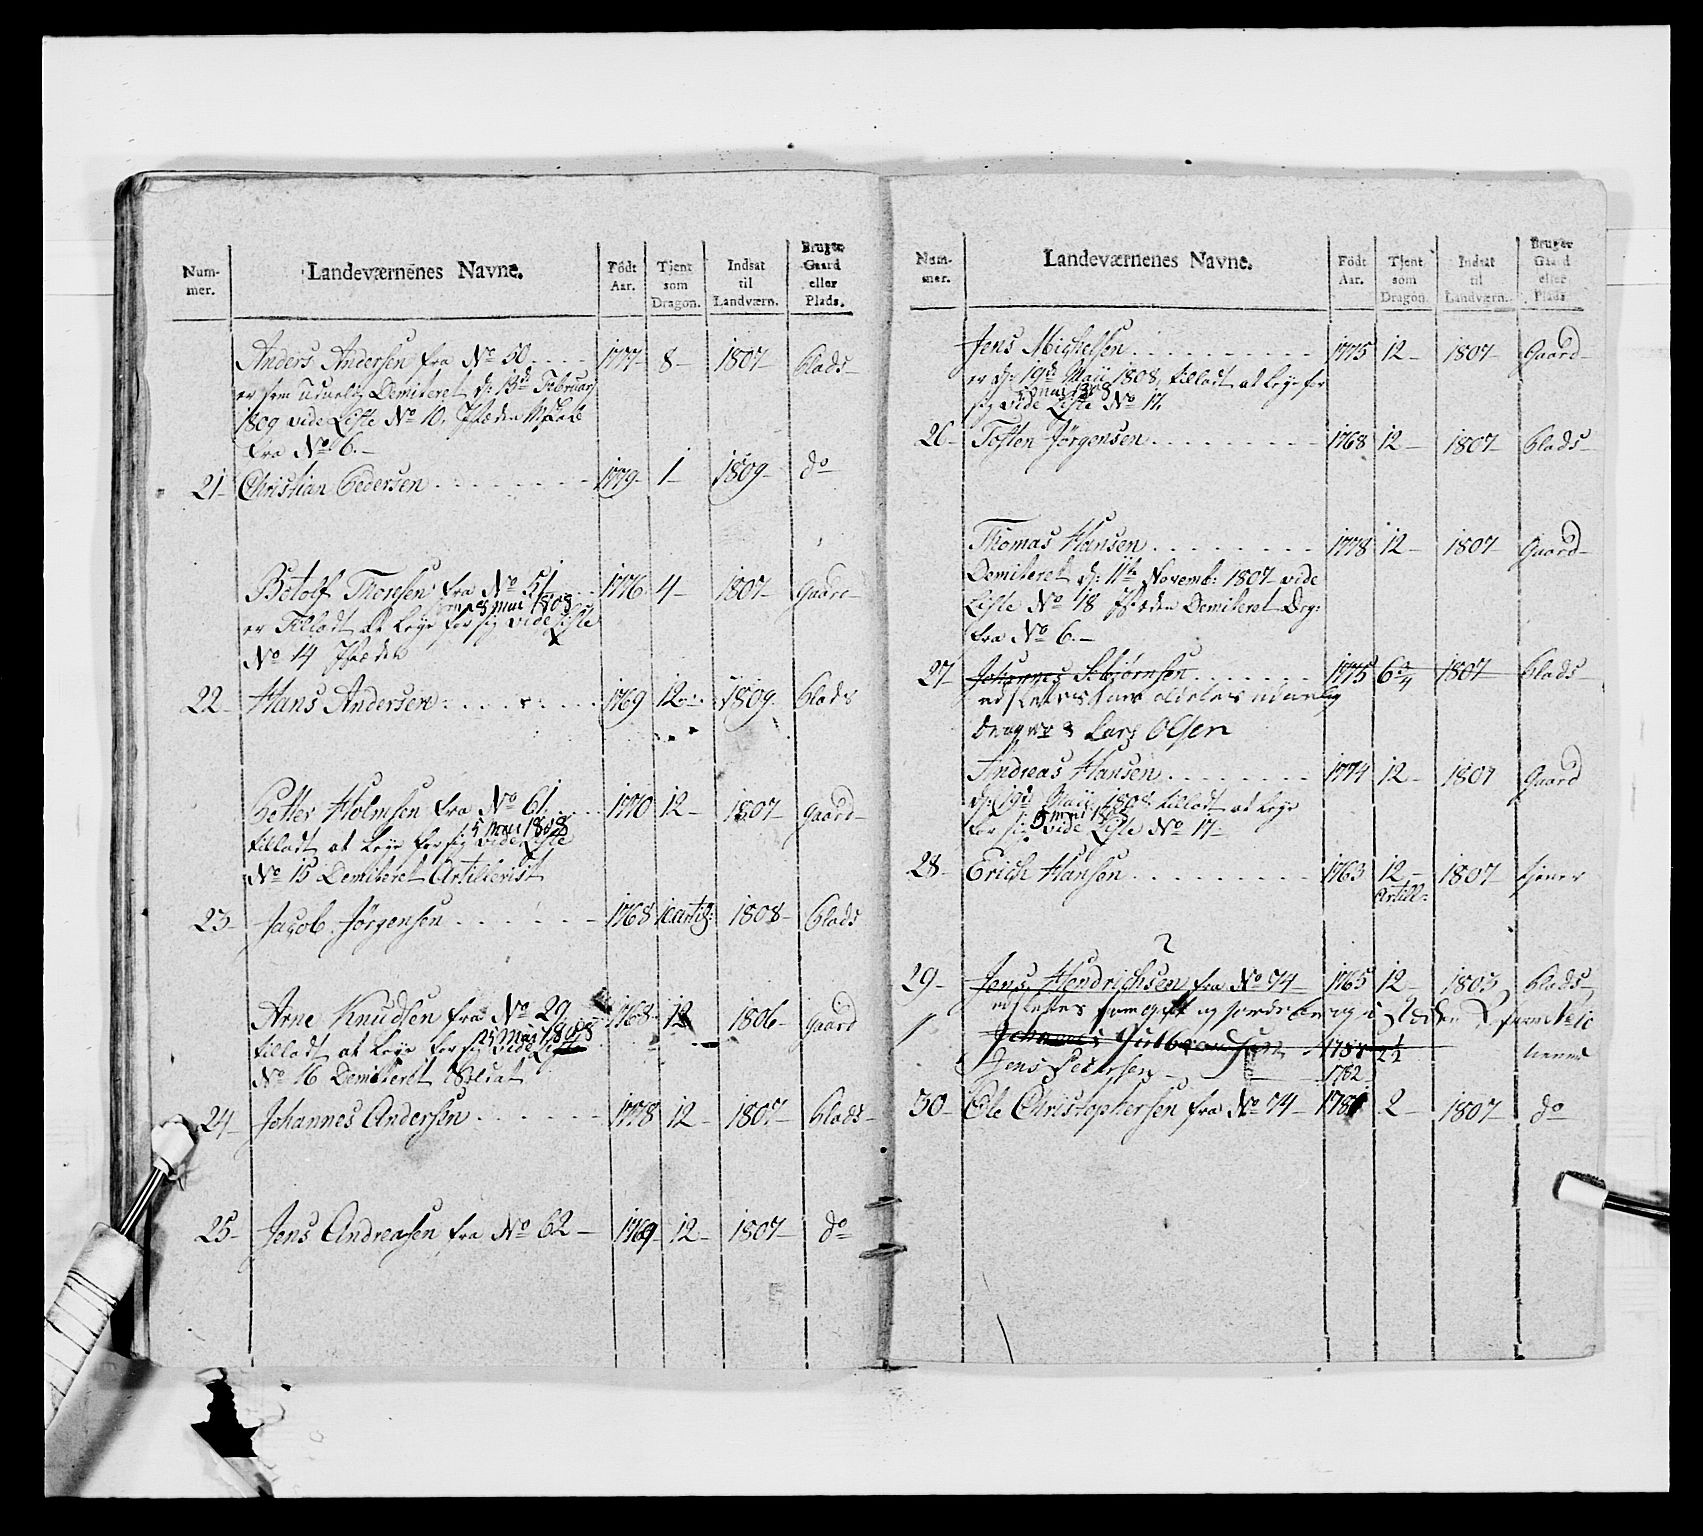 Num-
mer.
Landeværnenes Navne.
Født
Aar.
Tjent
som
Dragon.
Indsat
til
Landværn.
Bruger
Gaard
eller
Plads.
Anders Andersen fra No 50 1777 8 1807 Plads
er som uduelig Demiteret d: 13de Februarj
1809 vide Liste No 10. Isteden
fra No 6.
21 Christian Pedersen 1779 1 1809 do
Botolf Thoresen fra No 51 1776 4 1807 Gaard
5 mai 1808
er Tilladt at Leye for sig vide Liste
No 14 Isteden
22 Hans Andersen 1769 12 1809 Plads
Petter Holmsen fra No 61 1770 12 1807 Gaard
5 mai 1808
tilladt at Leye for sig vide Liste
No 15 Demiteret Artillerist
23 Jacob Jørgensen 1768 1808 Plads
Arne Knudsen fra No 29 1768 12 1806 Gaard
5 Mai 1808
tilladt at Leye for sig vide Liste
No 16 Demiteret Soldat
24 Johannes Andersen 1778 12 1807 Plads
25 Jens Andreasen fra No 62 1769 12 1807 do
Num-
mer.
Landeværnenes Navne.
Født
Aar.
Tjent
som
Dragon.
Indsat
til
Landværn.
Bruger
Gaard
eller
Plads.
Jens Michelsen 1775 12 1807 Gaard
er d: 19de Maii 1808, tilladt at Leye for
5 mai 1808
sig vide Liste No 17.
26 Tosten Jørgensen 1768 12 1807 Plads
Thomas Hansen 1778 12 1807 Gaard
Demiteret d: 11te Novemb: 1807 vide
Liste No 18 Isteden Demiteret Drg:
fra No 6.
27 Johannes 1775 6 3/4 1807 Plads
udslettes som aldeles uduelig
Lars Olsen
Andreas Hansen 1774 12 1807 Gaard
d: 19de Maii 1808 tilladt at Leye
5 mai 1808
for sig vide Liste No 17
28 Erich Hansen 1763 12 1807 tjener
Artill:
2
29 Jens Hendrichsen fra No 74 1765 12 1803 Plads
udslettes som gift og
1 Johannes Gulbrandsen 1788 2 1/2
Jens Pedersen 1782
30 Ole Christophersen fra No 74 1781 2 1807 do